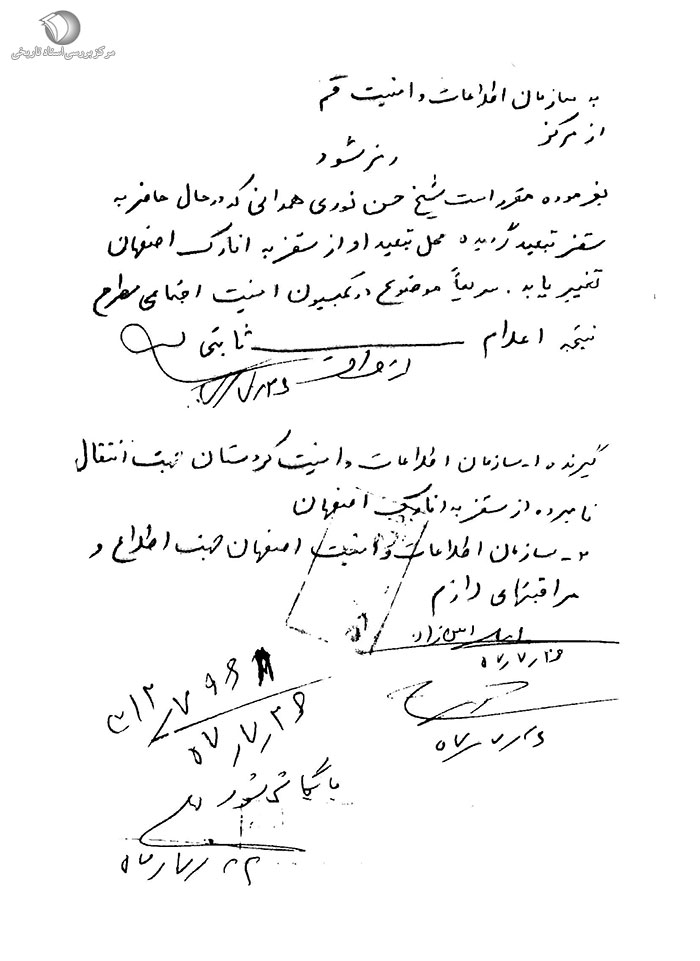 مرکز بررسی اسناد تاریخی
به سازمان اطلاعات و امنیت قم
از مرکز
رمز شود
بفرموده مقرر است شیخ حسن نوری همدانی که در حال حاضر به
سقز تبعید گردیده محل تبعید او از سقز به انارک اصفهان
تغییر یابد. سریعاً موضوع در کمیسیون امنیت اجتماعی مطرح
نتیجه اعلام ثابتی
۵۷/۷/۲۶
گیرنده ۱- سازمان اطلاعات و امنیت کردستان جهت انتقال
نامبرده از سقز به انارک اصفهان
۲- سازمان اطلاعات و امنیت اصفهان جهت اطلاع و
مراقبتهای لازم
۵۷/۷/۲۶
۵۷/۷/۲۶
۵۷/۷/۲۶
بایگانی شود